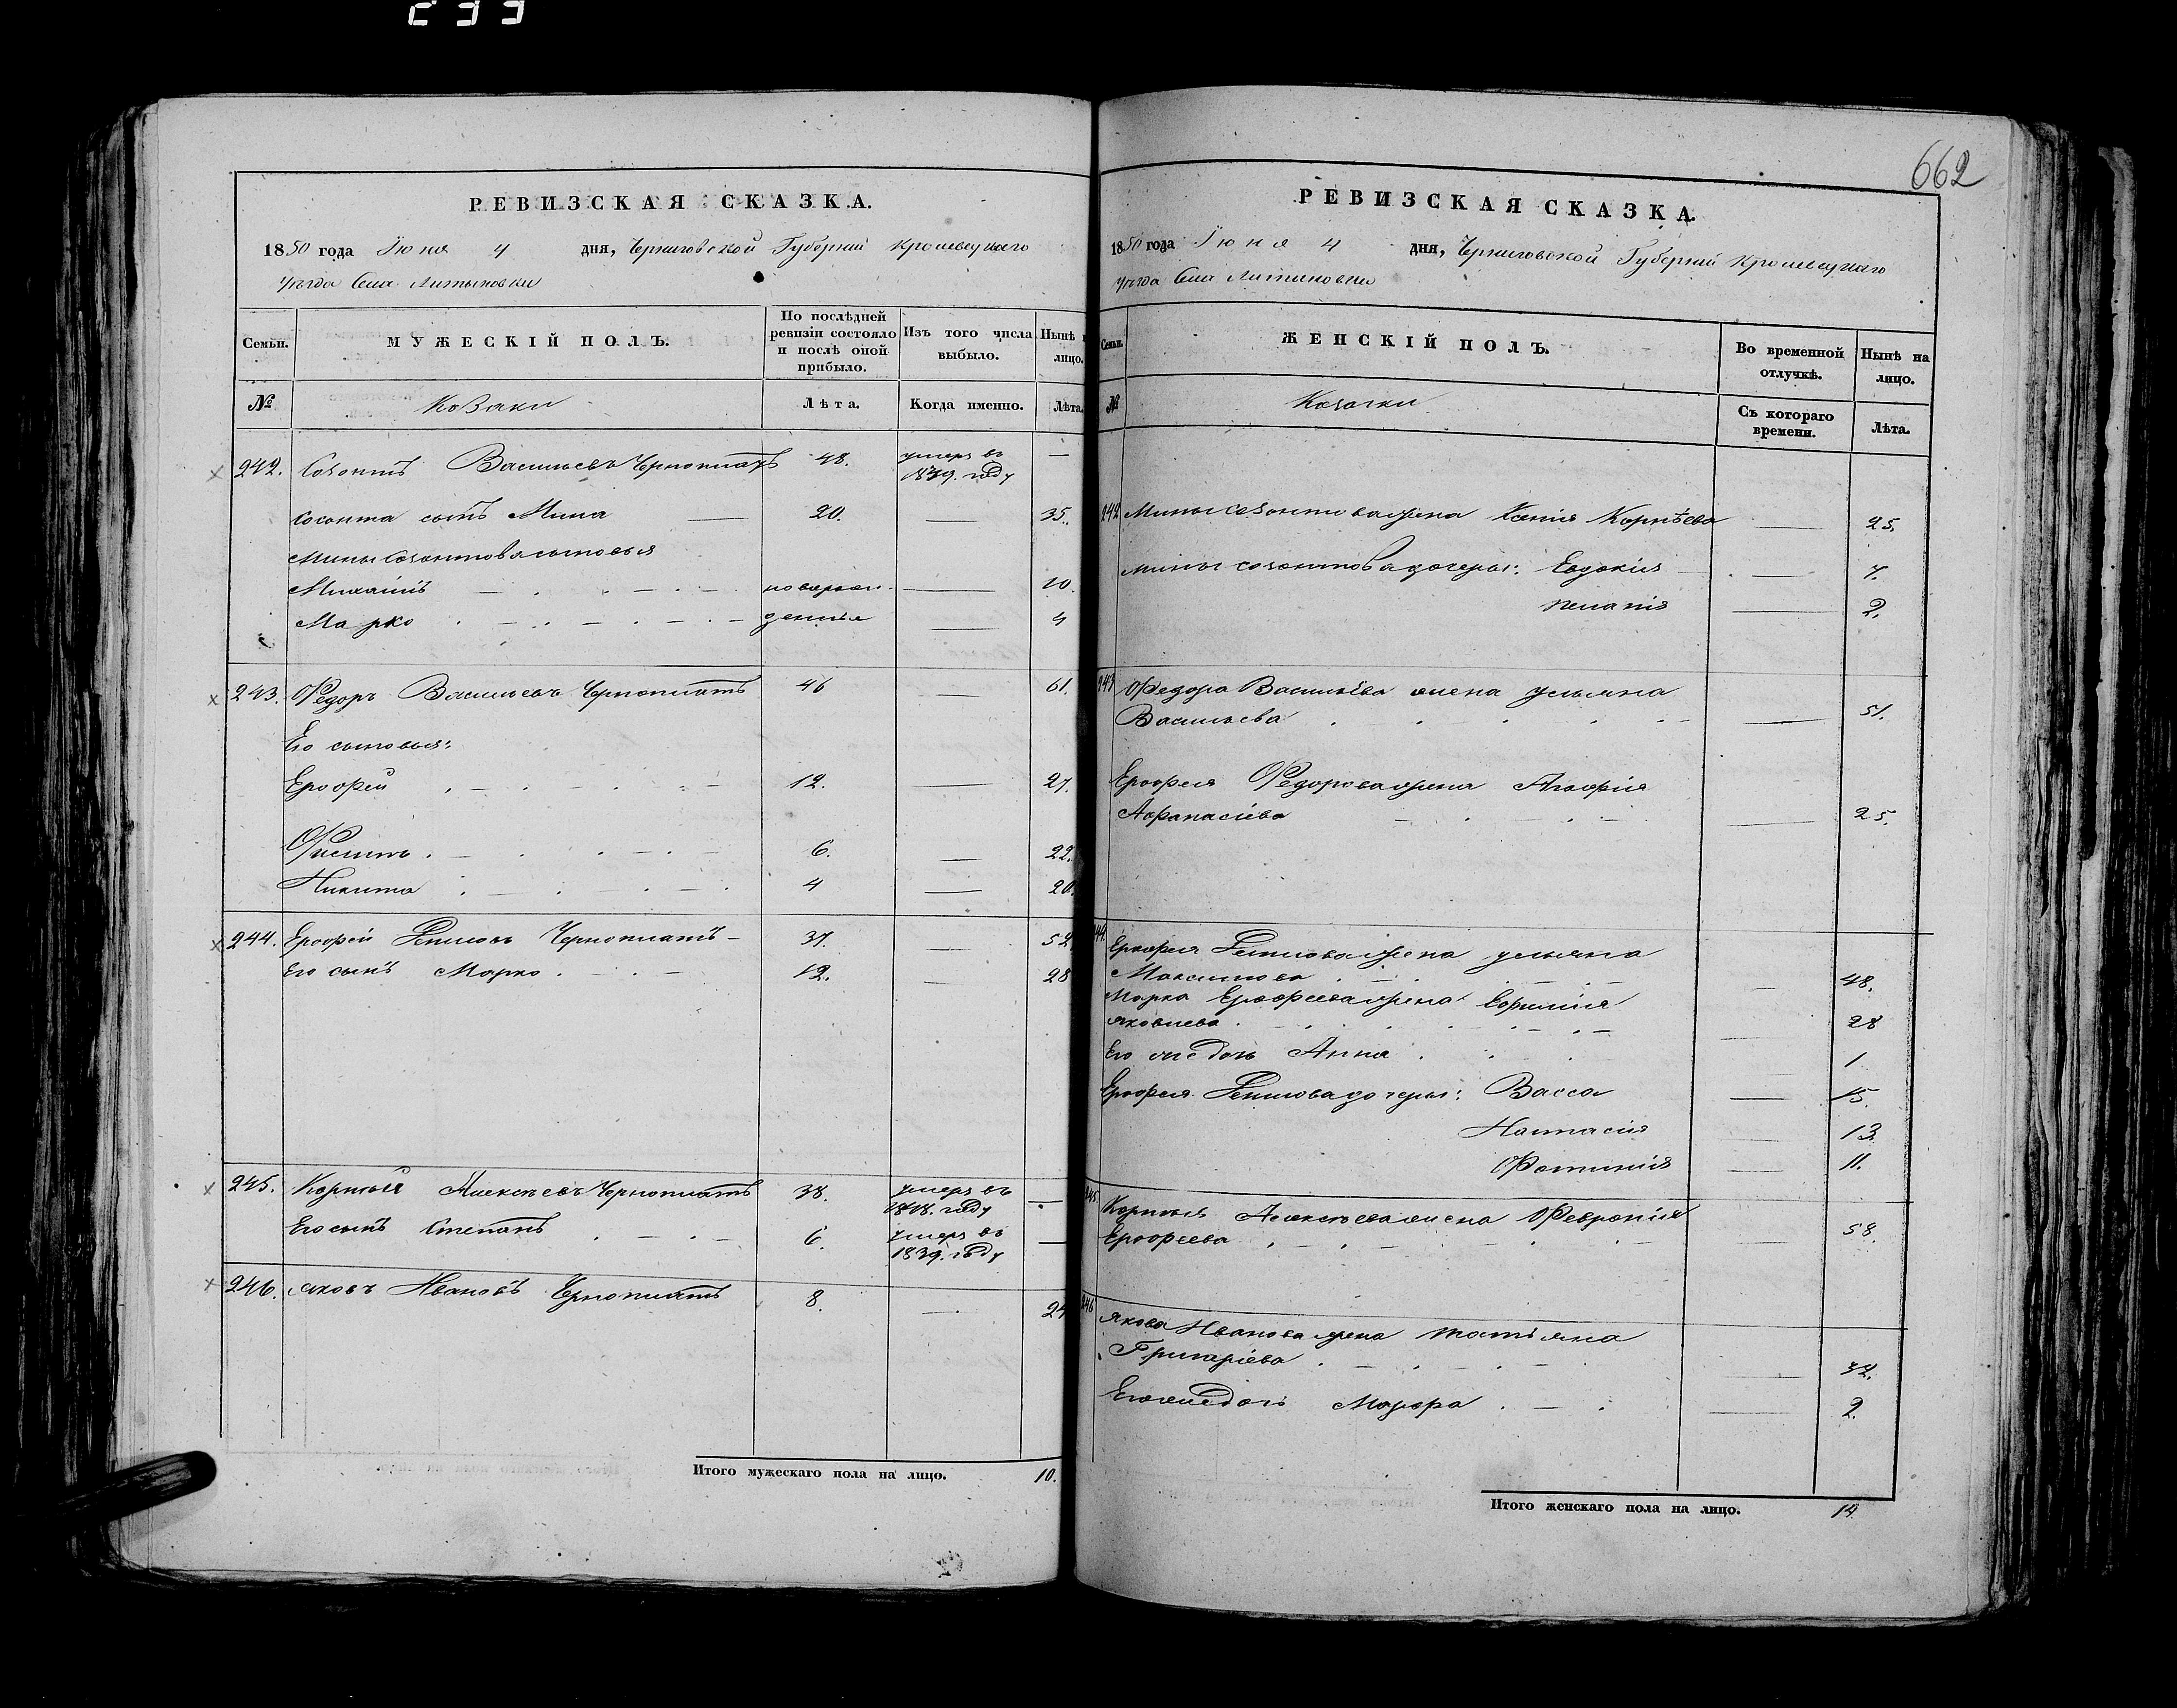 233
662
РЕВИЗСКАЯ СКАЗКА.
1850 года Іюня 4 дня, Черниговской Губерніи Кролевецкаго
уѣзда Села Литвиновки
Семьи. МУЖЕСКІЙ ПОЛЪ. По послѣдней ревизіи состояло и послѣ оной прибыло. Изъ того числа выбыло. Нынѣ лицо.
№ Козаки Лѣта. Когда именно. Лѣта.
242. Созонтъ Васильевъ Чернопятъ 48. умеръ въ 1839. году —
Созонта сынъ Мина 20. — 35.
Мины Созонтова сыновья
Михаилъ новорож- — 10.
Марко денные — 4
243. Ѳедоръ Васильевъ Чернопятъ 46 — 61.
Его сыновья:
Ерофей 12. — 27.
6. — 22.
Никита 4 — 20.
244. Ерофей Чернопятъ — 37. — 52
Его сынъ Марко 12. — 28
245. Корнѣй Алексѣевъ Чернопятъ 38. умеръ въ 1848. году —
Его сынъ Степанъ 6. умеръ въ 1839. году —
246. Яковъ Ивановъ Чернопятъ 8. — 24
Итого мужескаго пола на лицо. 10.
РЕВИЗСКАЯ СКАЗКА.
1850 года Іюня 4 дня, Черниговской Губерніи Кролевецкаго
уѣзда Села Литвиновки
Семьи. ЖЕНСКІЙ ПОЛЪ. Во временной отлучкѣ. Нынѣ на лицо.
№ Козачки Съ котораго времени. Лѣта.
242 Мины Созонтова жена Ксенія Корнѣева — 25.
Мины Созонтова дочеры: Евдокія — 7.
— 2.
243 Ѳедора Васильева жена Ульяна
Васильева — 51.
Ерофея Ѳедорова жена Агафія
Афанасіева — 25.
244. Ерофея жена Ульяна
Максимова — 48.
Марка Ерофеева жена Евфимія
Яковлева — 28
Его же дочь Анна 1
Ерофея дочеры: Васса — 15.
Настасія — 13
Фотинія — 11.
245 Корнѣя Алексѣева жена Февронія
Ерофеева — 58.
246 Якова Иванова жена Татіяна
Григоріева — 32.
Его же дочь Мавра — 2.
Итого женскаго пола на лицо. 14